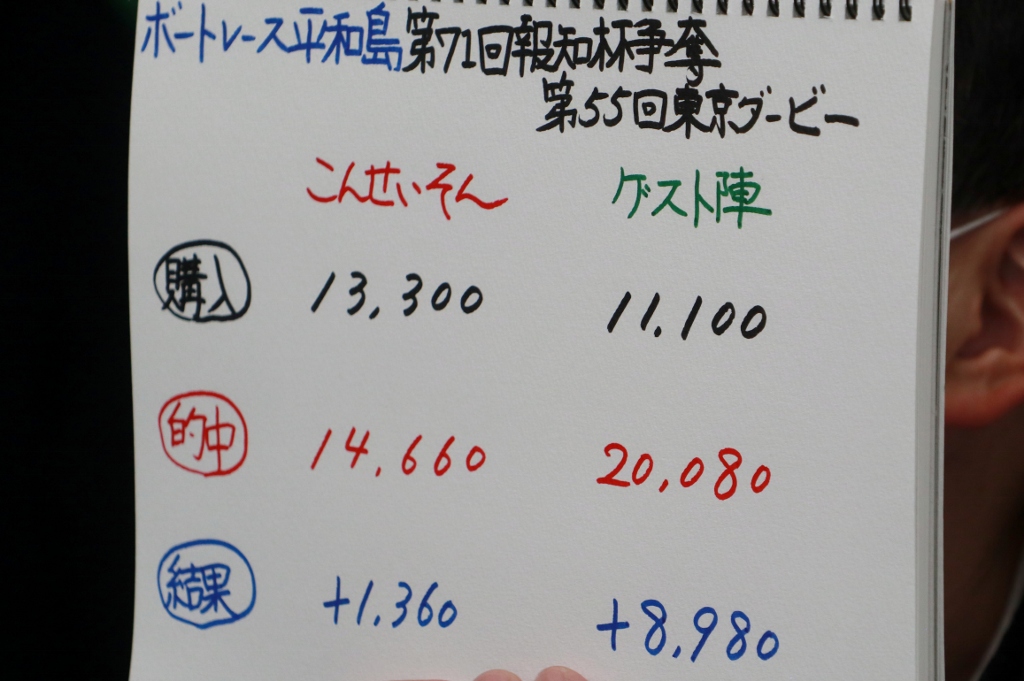 ボートレース平和島第71回報知杯争奪
第55回東京ダービー
こんせいそん ゲスト陣
購入 13,300 11,100
的中 14,660 20,080
結果 +1,360 +8,980